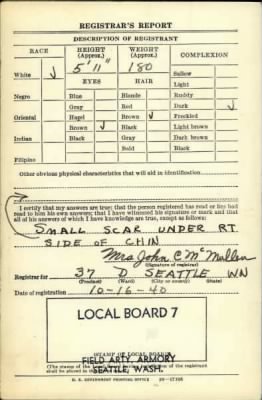 REGISTRAR'S REPORT
DESCRIPTION OF REGISTRANT
RACE
HEIGHT (Approx.)
WEIGHT (Approx.)
COMPLEXION
5' 11" 180
White ✓ Sallow
EYES HAIR Light
Negro Blue Blonde Ruddy
Gray Red Dark ✓
Oriental Hazel Brown ✓ Freckled
Brown ✓ Black Light brown
Indian Black Gray Dark brown
Bald Black
Filipino
Other obvious physical characteristics that will aid in identification
I certify that my answers are true; that the person registered has read or has had
read to him his own answers; that I have witnessed his signature or mark and that
all of his answers of which I have knowledge are true, except as follows:
SMALL SCAR UNDER RT.
SIDE OF CHIN
Mrs John C McMullen
(Signature of registrar)
Registrar for 37 D SEATTLE WN
(Precinct) (Ward) (City or county) (State)
Date of registration 10-16-40
LOCAL BOARD 7
FIELD ARTY. ARMORY
SEATTLE, WASH.
(STAMP OF LOCAL BOARD)
(The stamp of the Local Board having jurisdiction of the registrant
shall be placed in the above space.)
U. S. GOVERNMENT PRINTING OFFICE